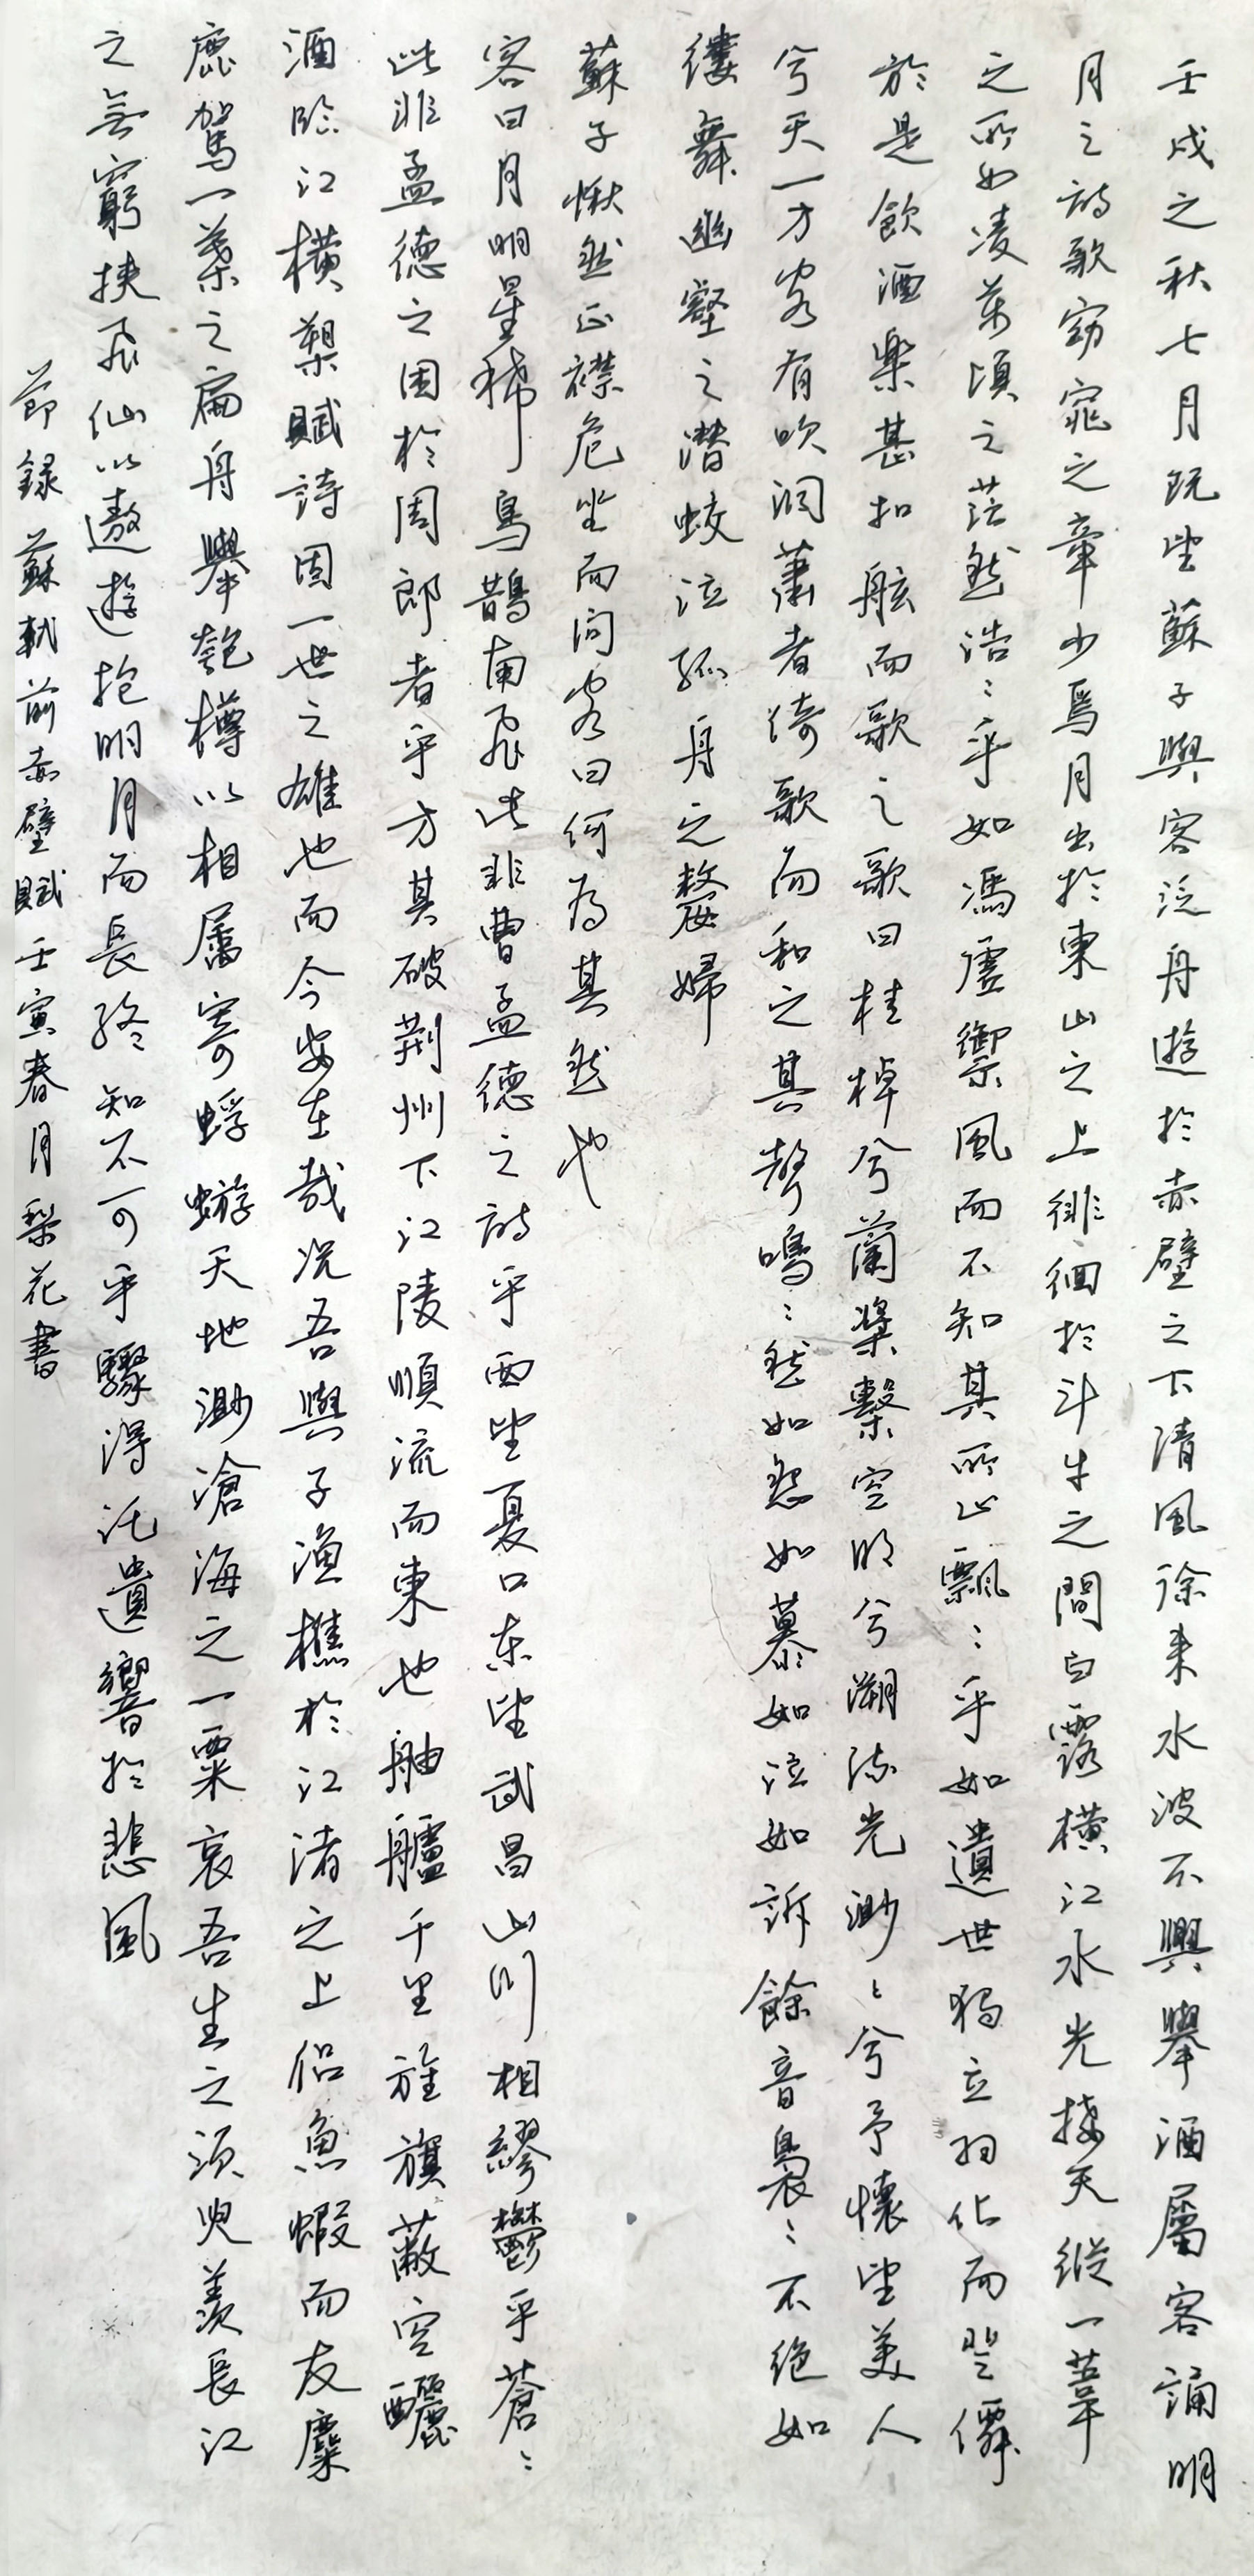 壬戌之秋七月既望蘇子與客泛舟遊於赤壁之下清風徐来水波不興舉酒屬客誦明
月之詩歌窈窕之章少焉月出於東山之上徘徊於斗牛之間白露橫江水光接天縱一葦
之所如凌萬頃之茫然浩〻乎如馮虛御風而不知其所止飄〻乎如遺世獨立羽化而登僊
於是飲酒樂甚扣舷而歌之歌曰桂棹兮蘭槳擊空明兮溯流光渺〻兮予懷望美人
兮天一方客有吹洞蕭者倚歌而和之其聲嗚〻然如怨如慕如泣如訴餘音裊〻不絕如
縷舞幽壑之潛蛟泣孤舟之嫠婦
蘇子愀然正襟危坐而問客曰何為其然也
客曰月明星稀烏鵲南飛此非曹孟德之詩乎西望夏口东望武昌山川相繆鬱乎蒼〻
此非孟德之困於周郎者乎方其破荆州下江陵順流而東也舳艫千里旌旗蔽空釃
酒臨江橫槊賦詩固一世之雄也而今安在哉况吾與子漁樵於江渚之上侣魚蝦而友麋
鹿駕一葉之扁舟舉匏樽以相屬寄蜉蝣天地渺滄海之一粟哀吾生之須臾羨長江
之無窮挟飛仙以遨遊抱明月而長終知不可乎驟得託遺響於悲風
節録蘇軾前赤壁賦壬寅春月梨花書